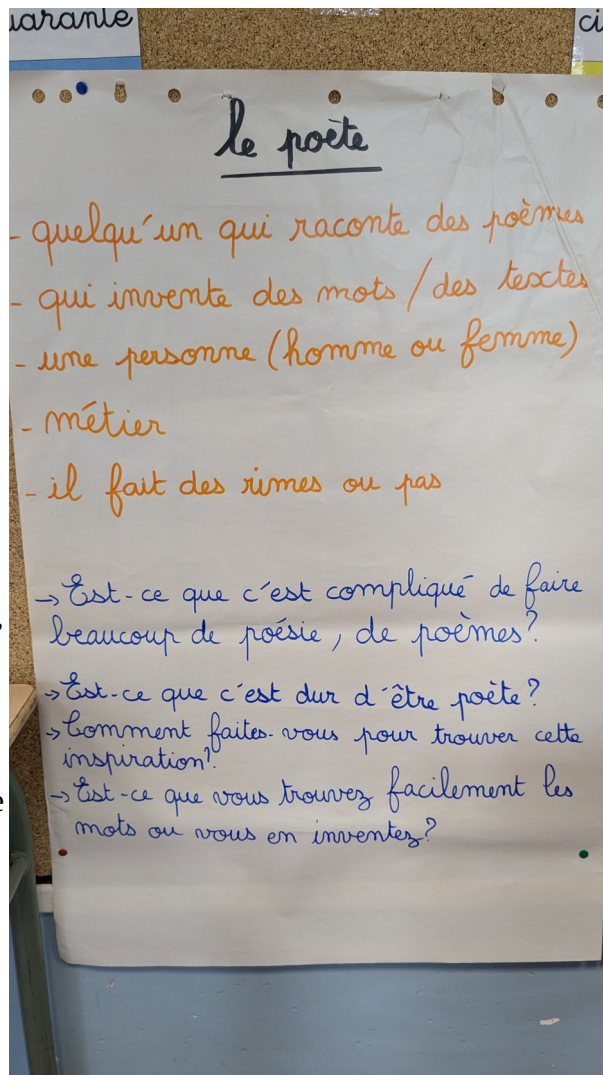 le poète
- quelqu'un qui raconte des poèmes
- qui invente des mots / des textes
- une personne (homme ou femme)
- métier
- il fait des rimes ou pas
→ Est-ce que c'est compliqué de faire
beaucoup de poésie, de poèmes?
→ Est-ce que c'est dur d'être poète?
→ Comment faites-vous pour trouver cette
inspiration?
→ Est-ce que vous trouvez facilement les
mots ou vous en inventez?